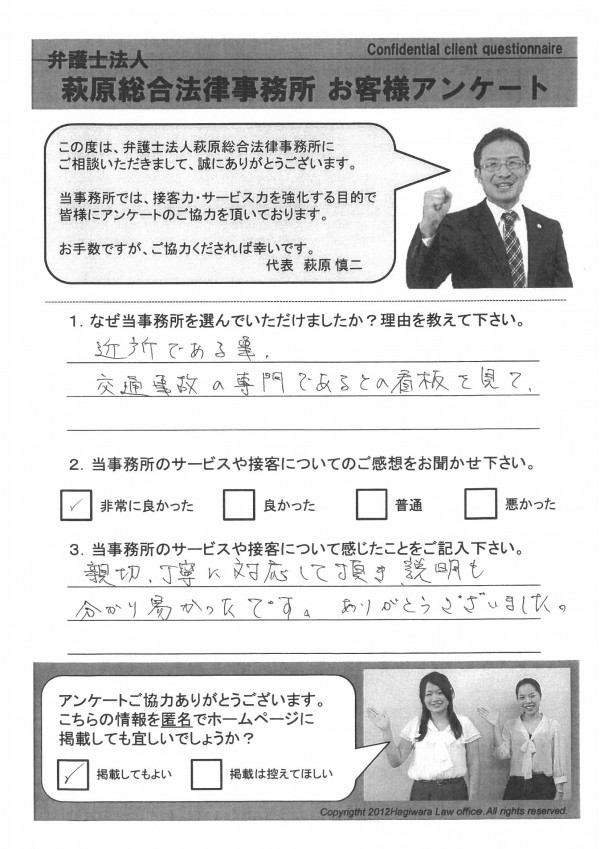 Confidential client questionnaire
弁護士法人
萩原総合法律事務所 お客様アンケート
この度は、弁護士法人萩原総合法律事務所に
ご相談いただきまして、誠にありがとうございます。
当事務所では、接客力・サービス力を強化する目的で
皆様にアンケートのご協力を頂いております。
お手数ですが、ご協力くだされば幸いです。
代表 萩原 慎二
1. なぜ当事務所を選んでいただけましたか？理由を教えて下さい。
近所である事、
交通事故の専門であるとの看板を見て、
2. 当事務所のサービスや接客についてのご感想をお聞かせ下さい。
✓ 非常に良かった 良かった 普通 悪かった
3. 当事務所のサービスや接客について感じたことをご記入下さい。
親切、丁寧に対応して頂き、説明も
分かり易かったです。ありがとうございました。
アンケートご協力ありがとうございます。
こちらの情報を匿名でホームページに
掲載しても宜しいでしょうか？
✓ 掲載してもよい 掲載は控えてほしい
Copyritght 2012Hagiwara Law office.All rights reserved.